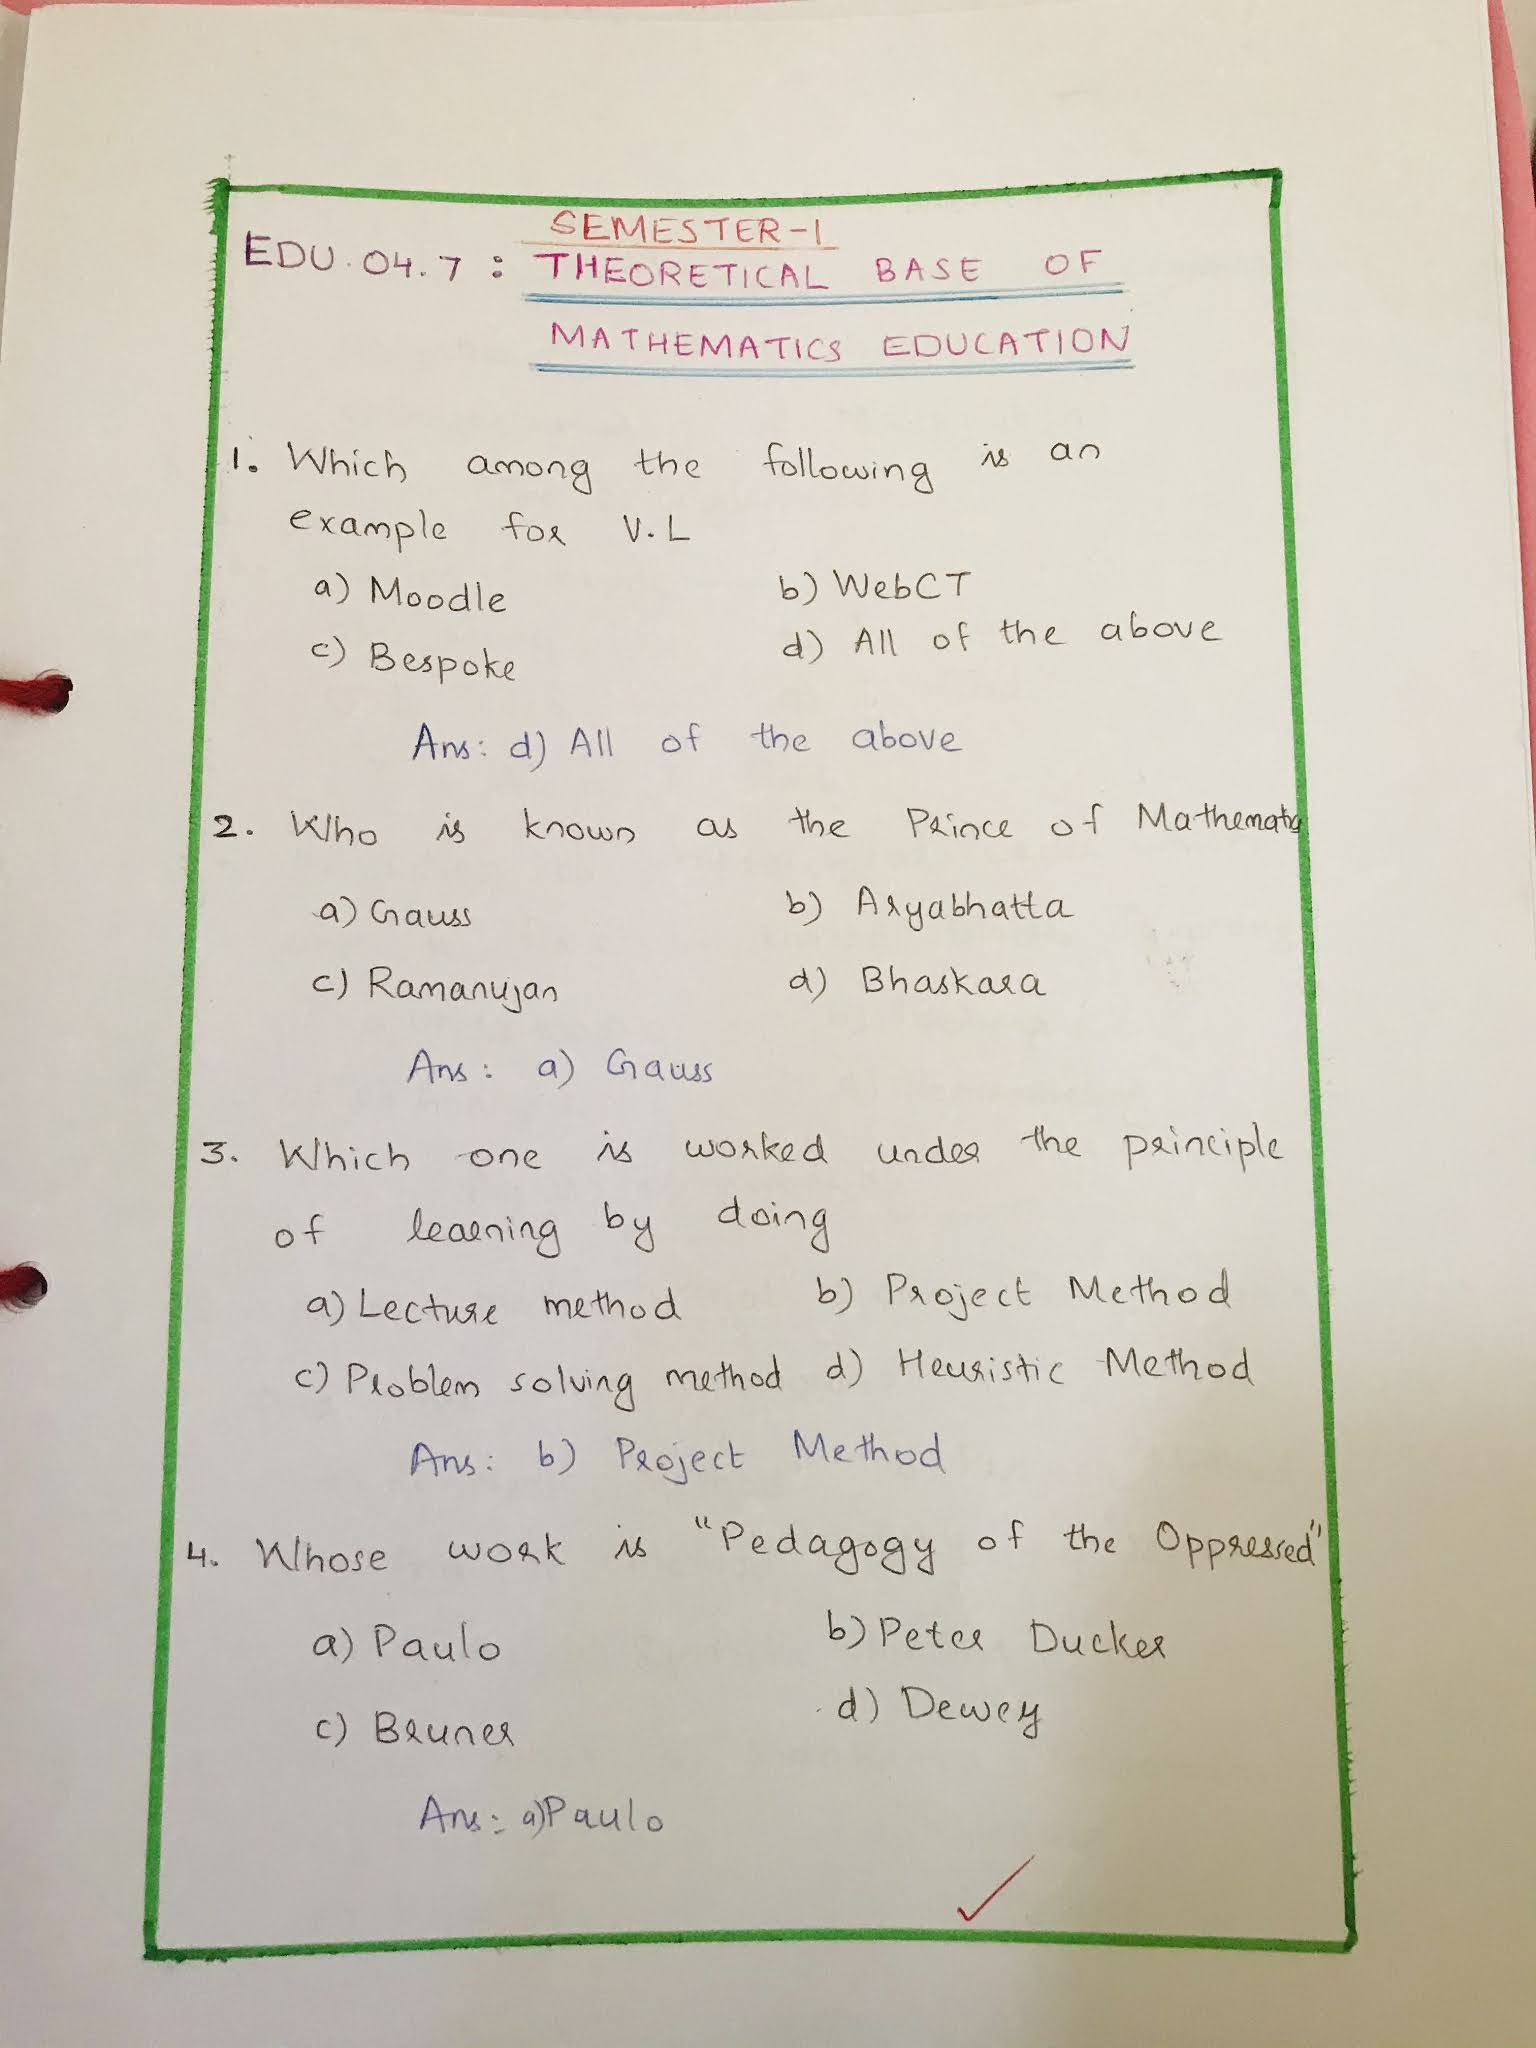 SEMESTER-I
EDU.04.7 : THEORETICAL BASE OF
MATHEMATICS EDUCATION
1. Which among the following is an
example for V.L
a) Moodle b) WebCT
c) Bespoke d) All of the above
Ans: d) All of the above
2. Who is known as the Prince of Mathematics
a) Gauss b) Aryabhatta
c) Ramanujan d) Bhaskara
Ans: a) Gauss
3. Which one is worked under the principle
of learning by doing
a) Lecture method b) Project Method
c) Problem solving method d) Heuristic Method
Ans: b) Project Method
4. Whose work is "Pedagogy of the Oppressed"
a) Paulo b) Peter Ducker
c) Bruner d) Dewey
Ans: a) Paulo